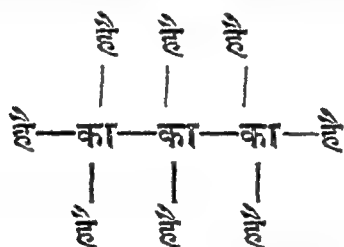 है है है
है—का—का—का—है
है है है